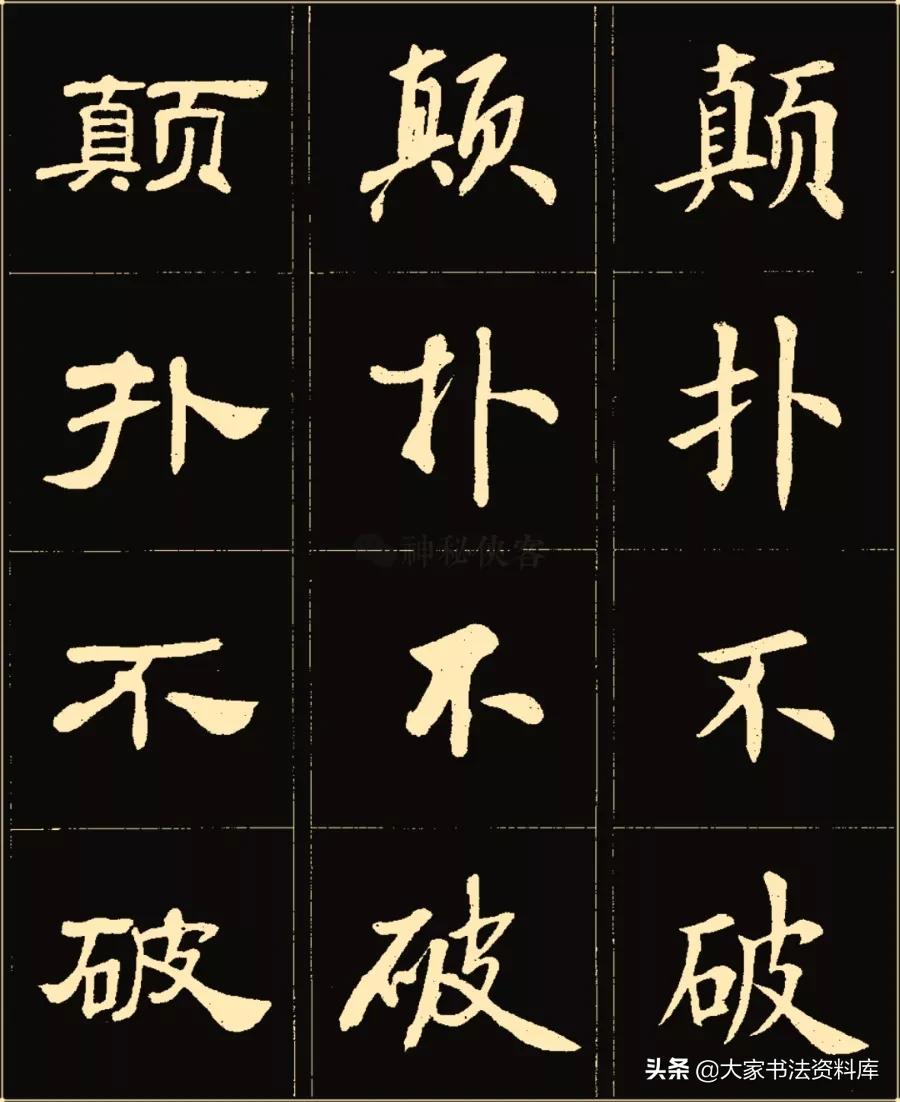 颠 颠 颠
扑 扑 扑
神秘侠客
不 不 不
破 破 破
头条 @大家书法资料库